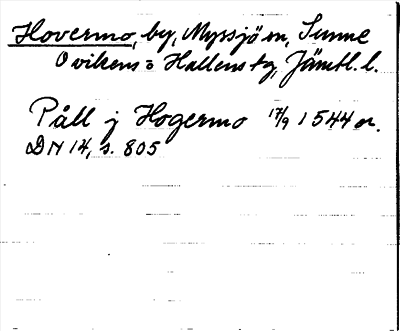 Hovermo, by, Myssjö sn, Sunne
Ovikens o Hallens tg, Jämtl. l.
Påll j Hogermo 17/9 1544 or.
DN 14, s. 805